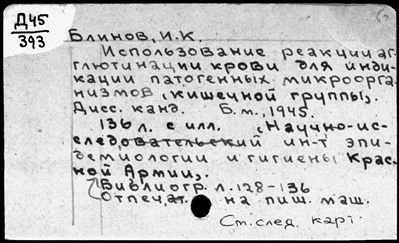 Д45
393
Блинов, И.К.
Использование реакции аг-
глютинации крови для инди-
кации патогенных микроорга-
низмов, кишечной группы,.
Дисс. канд. Б.м., 1945.
136 л. с илл. (Научно-ис-
следовательский ин-т эпи-
демиологии и гигиены Крас-
ной Армии,.
Библиогр. л. 128-136
Отпечат. на пиш. маш.
См. след. карт.